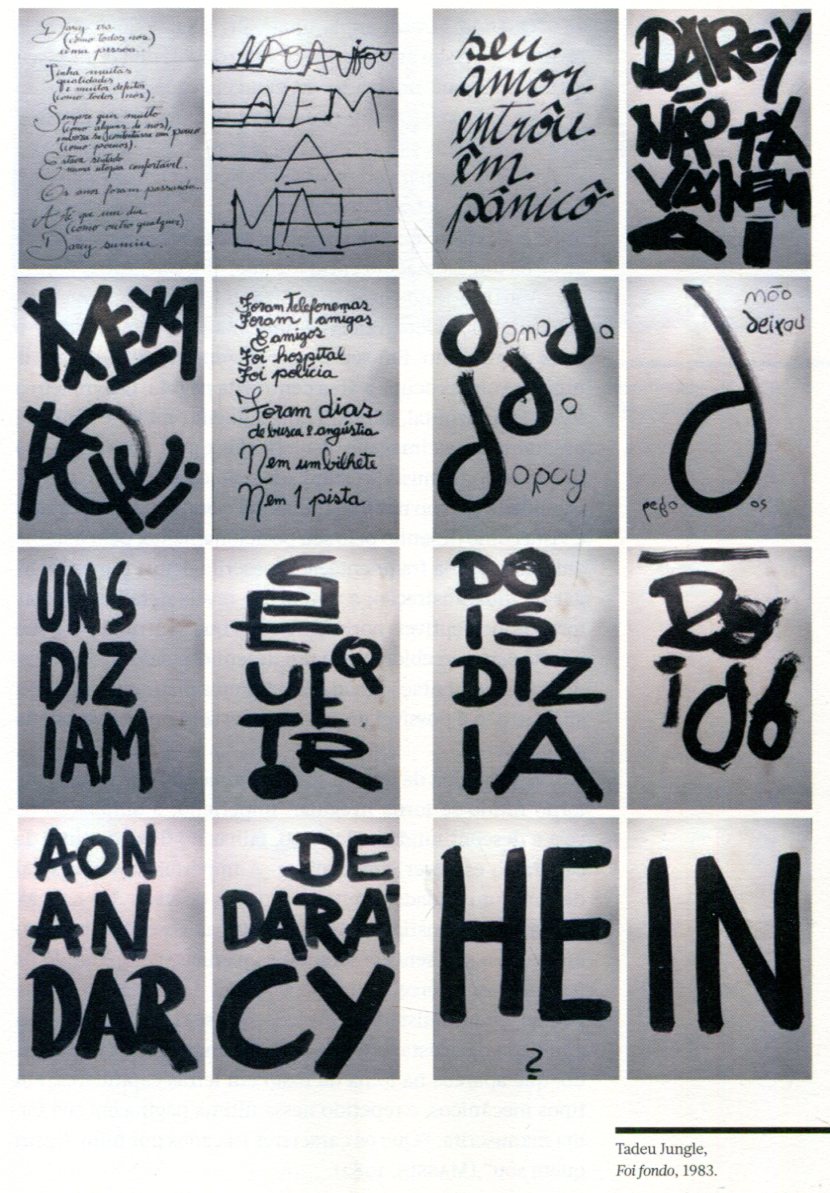 Darcy era
(como todos nós)
uma pessoa.
Tinha muitas
qualidades
e muitos defeitos
(como todos nós).
Sempre quis muito
(como alguns de nós),
embora se contentasse com pouco
(como poucos).
Estava sentado
numa utopia confortável.
Os anos foram passando...
Até que um dia
(como outro qualquer)
Darcy sumiu.
NÃO AVISOU
NEM
A
MÃE
seu
amor
entrôu
êm
pânicô
DARCY
NÃO TÁ
VA NEM
A Í
NEM
AQUi
Foram telefonemas
Foram amigas
E amigos
Foi hospital
Foi polícia
Foram dias
de busca e angústia
Nem um bilhete
Nem 1 pista
não
deixou
pegadas
UNS
DIZ
IAM
SE
QUE
TR
DO
IS
DIZ
IA
DO
AON
AN
DAR
DE
DARA
CY
HE
?
IN
Tadeu Jungle,
Foi fondo, 1983.